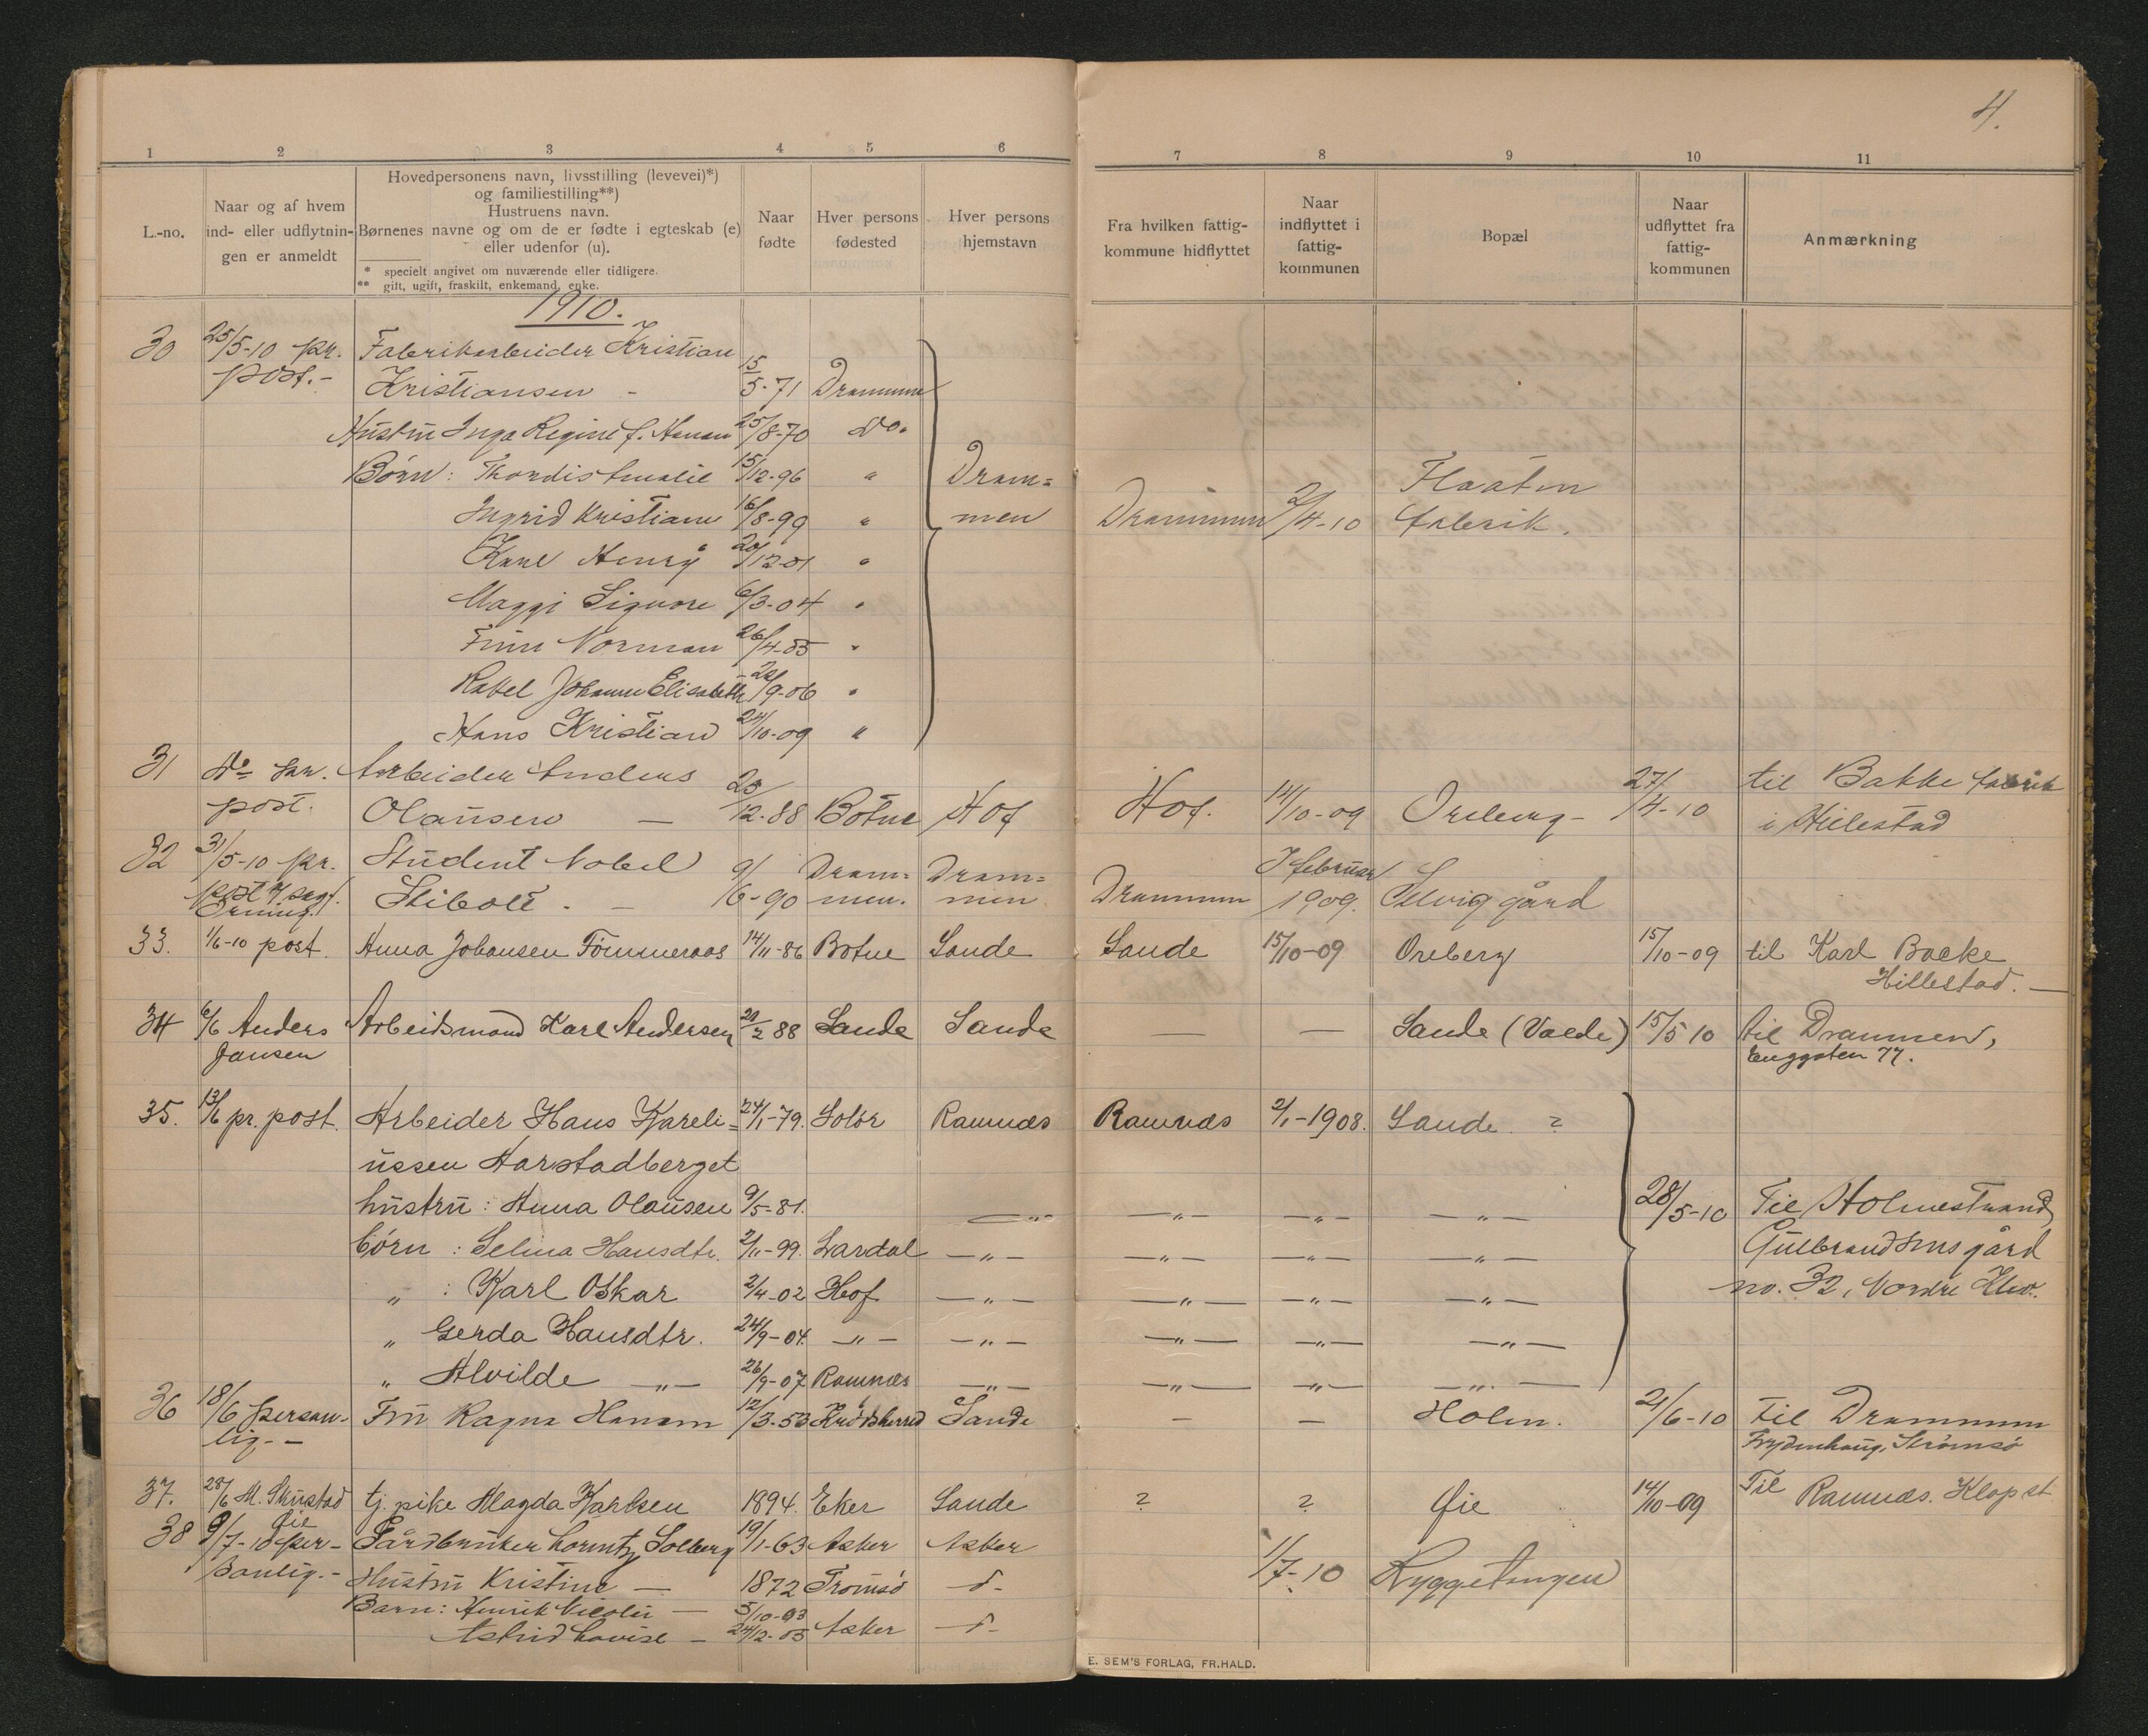 4.
1 2 3 4 5 6 7 8 9 10 11
L.-no.
Naar og af hvem
ind- eller udflytnin-
gen er anmeldt
Hovedpersonens navn, livsstilling (levevei)*)
og familiestilling**)
Hustruens navn.
Børnenes navne og om de er fødte i egteskab (e)
eller udenfor (u).
* specielt angivet om nuværende eller tidligere.
** gift, ugift, fraskilt, enkemand, enke.
Naar
fødte
Hver persons
fødested
Hver persons
hjemstavn
Fra hvilken fattig-
kommune hidflyttet
Naar
indflyttet i
fattig-
kommunen
Bopæl
Naar
udflyttet fra
fattig-
kommunen
Anmærkning
1910.
30 25/5-10 pr. Fabrikarbeider Kristian
post.- Kristiansen - 15/5-71 Drammen
Hustru Inga Regine f. Hansen 25/8-70 do.
Børn: Thordis Amalie 15/12-96 " Dram= Flaaten
Ingrid Kristiane 16/8-99 " men Drammen 2/4-10 fabrik.
Karl Henry 20/12-01 "
Maggi Signore 6/3-04 "
Finn Norman 26/4-05 "
Rakel Johanne Elisabeth 20/9-06 "
Hans Kristian 24/10-09 "
31 do pr. Arbeider Anders 27/4-10 til Bakke fabrik
post. Olausen — 20/12-88 Botne Hof Hof. 14/10-09 Oreberg - i Hillestad
32 31/5-10 pr. Student Nobel 9/6-90 Dram= Dram= I februar
post Stibolt. - men. men Drammen 1909. Selvig gård
33. 1/6-10 post. Anna Johansen Tömmeraas 14/11-86 Botne Sande Sande 15/10-09 Oreberg 15/10-09 til Karl Backe
Hillestad. —
34 6/6 Anders Arbeidsmand Karl Andersen 20/2 88 Sande Sande — — Sande (Valde) 15/5 10 til Drammen,
Jansen Enggaten 77.
35. 13/6 pr. post. Arbeider Hans Kareli= 24/1-79. Solör Ramnæs Ramnæs 2/1-1908. Sande ?
ussen Harstadberget
hustru: Anna Olausen 9/5-81. —"— —"— —"— —"— 28/5-10 Til Holmestrand,
børn: Selma Hansdtr. 2/11-99. Lardal —"— —"— —"— —"— Gulbrandsens gård
" : Karl Oskar 2/4-02 Hof —"— —"— —"— —"— no. 32, Nordre Elv.
" Gerda Hansdtr. 24/9-04. —"— —"— —"— —"— —"—
" Alvilde —"— 26/9-07 Ramnæs —"— —"— —"— —"—
36 18/6 person- Fru Ragna Hansen 12/3-53 Krødsherred Sande — — Holm. 21/6-10 til Drammen
lig.- Frydenhaug, Strømsø
37. 28/6 M. Skustad tj. pike Magda Karlsen 1894. Eker Sande ? ? Øie 14/10-09 Til Ramnæs. Klopst
Øie
38 9/7-10 per- Gårdbruker Lorentz Solberg 19/1-63 Asker Asker
sonlig.- Hustru Kristine — 1872 Tromsö d- 1/7-10 Ryggetangen
Barn: Henrik Nicolai — 5/10-03
Astrid Lovise — 24/12-05 Asker d-
E. SEM'S FORLAG, FR.HALD.